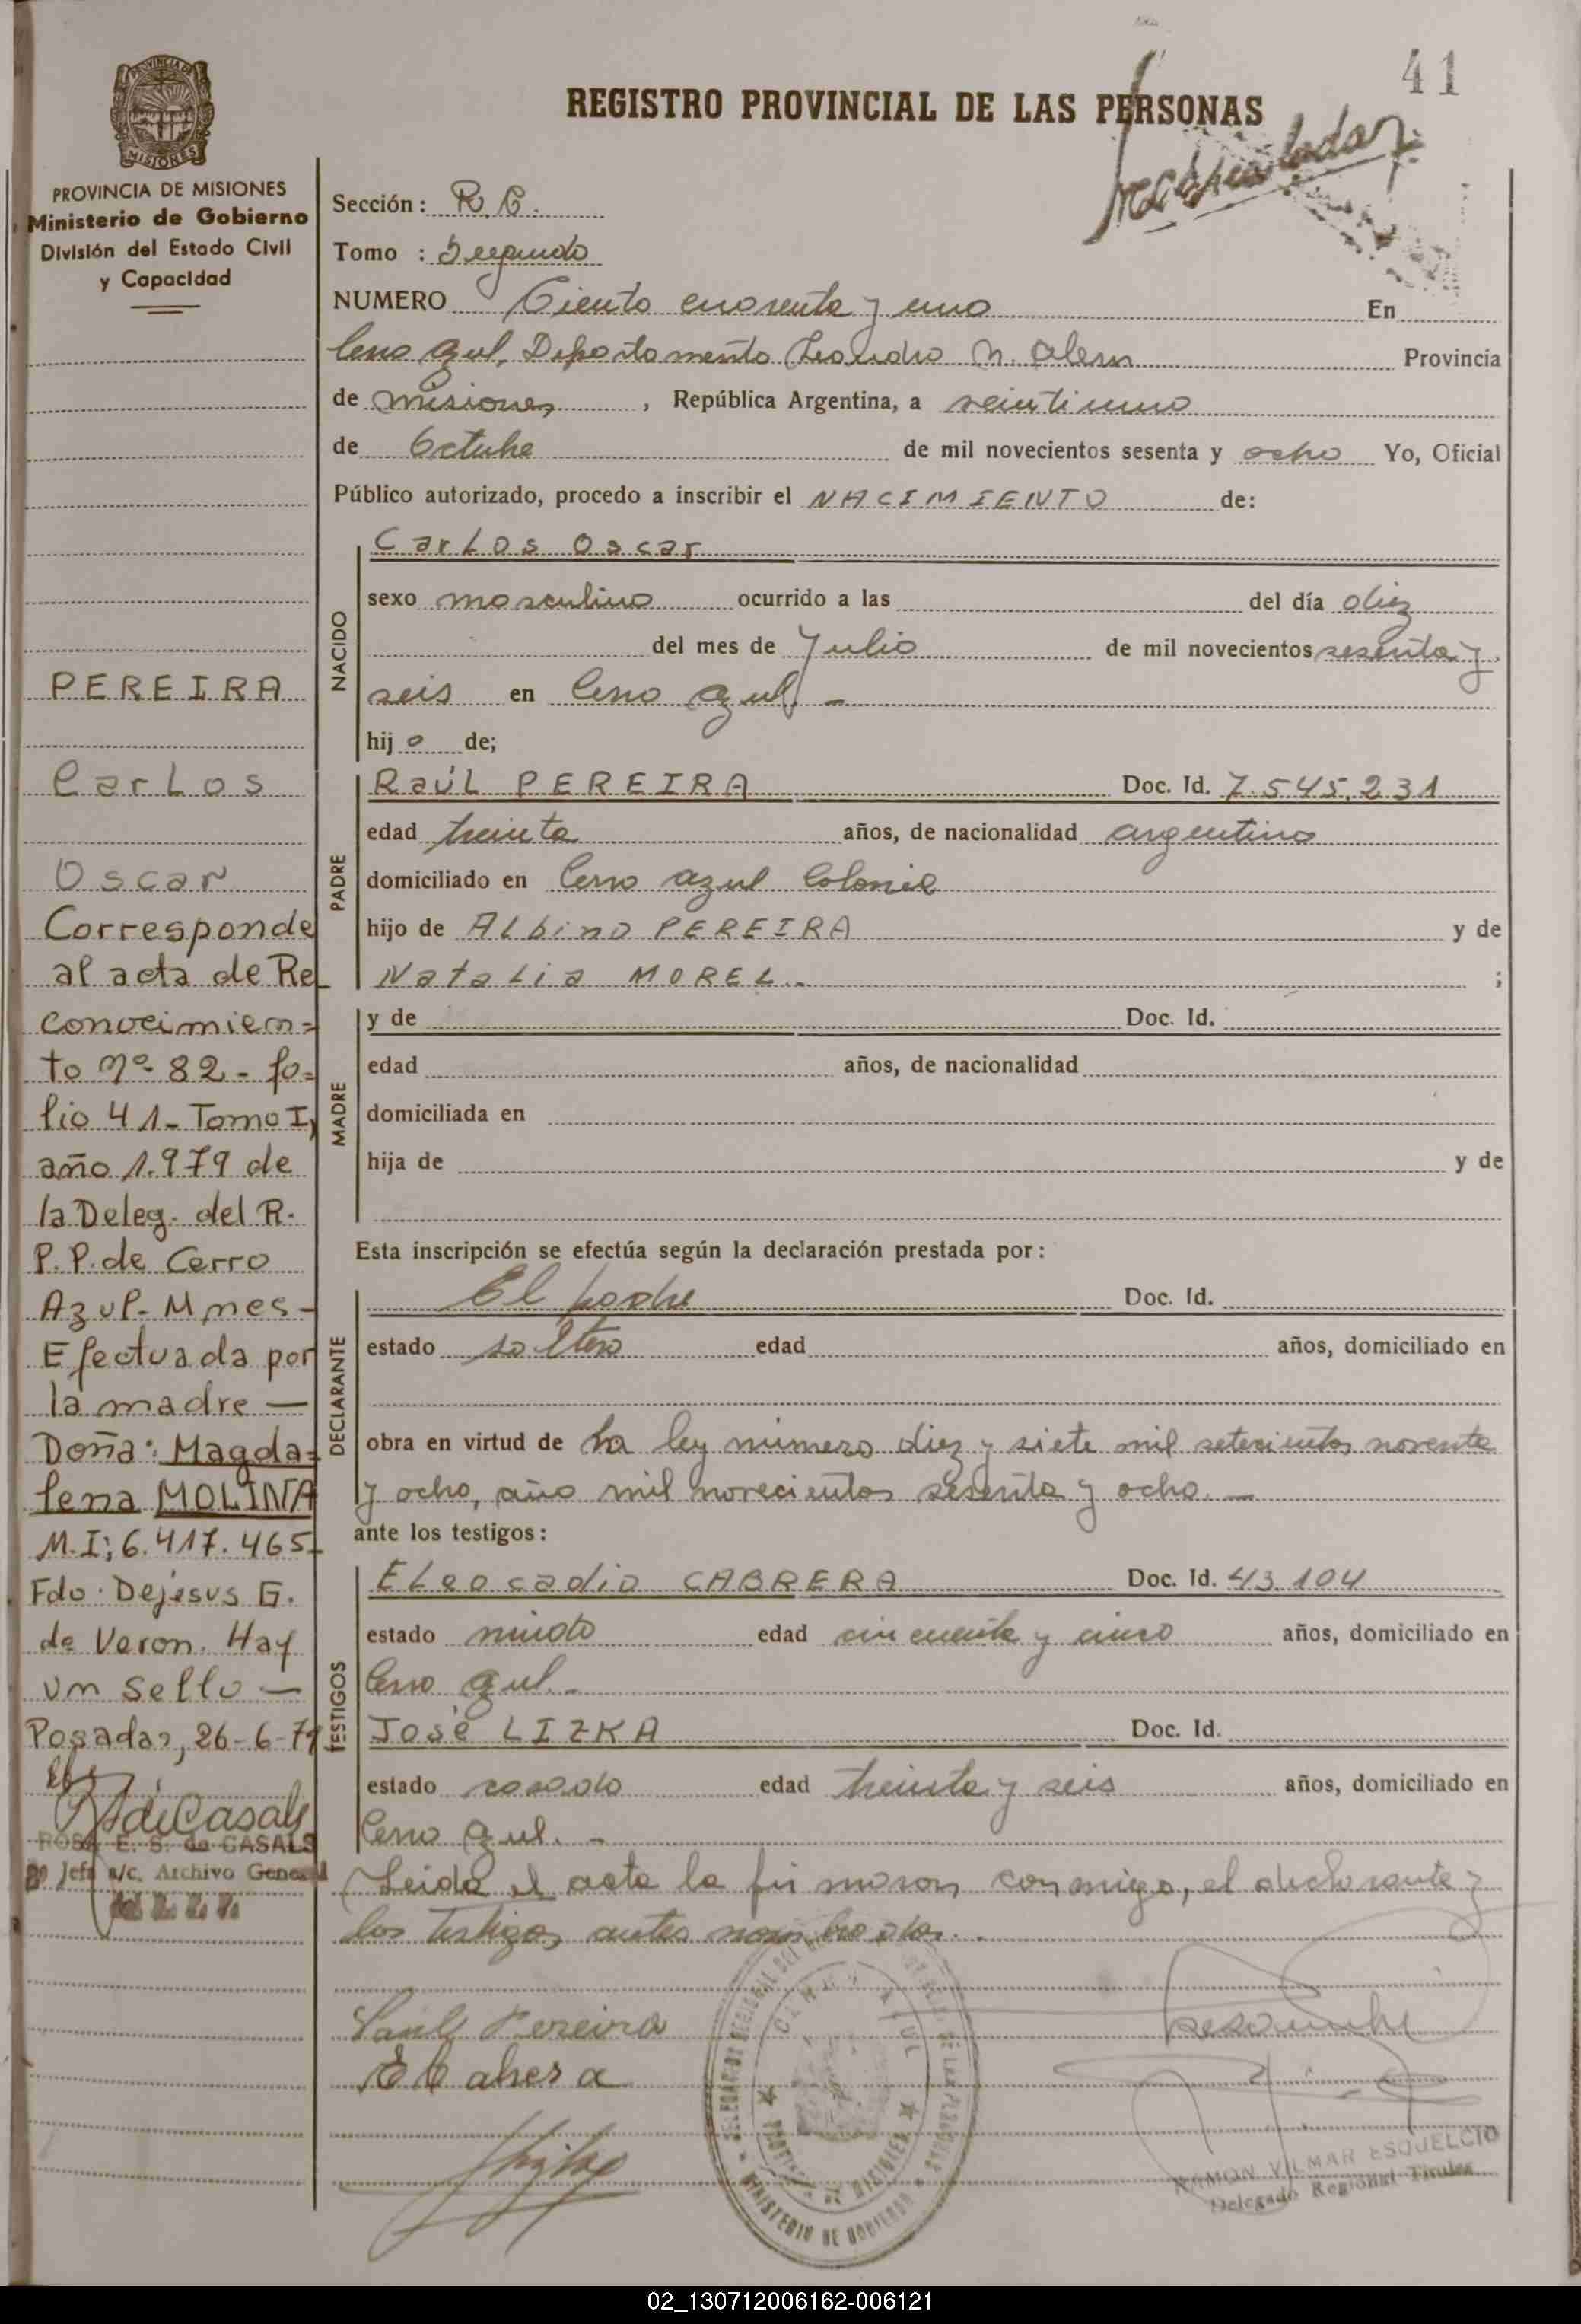 41
REGISTRO PROVINCIAL DE LAS PERSONAS
PROVINCIA DE MISIONES
MISIONES
PROVINCIA DE MISIONES
Ministerio de Gobierno
División del Estado Civil
y Capacidad
PEREIRA
Carlos
Oscar
Corresponde
al acta de Re
conocimien=
to Nº 82 - fo=
lio 41 - Tomo I,
año 1.979 de
la Deleg. del R.
P. P. de Cerro
Azul - Mnes -
Efectuada por
la madre —
Doña: Magda=
lena MOLINA
M.I: 6.417.465
Fdo. Dejesus G.
de Veron. Hay
un sello —
Posadas, 26-6-79
ROSA E. S. de CASALS
Jefe a/c. Archivo General
Sección: R. C.
Tomo : Segundo
NUMERO Ciento cuarenta y uno En
Cerro Azul, Departamento Leandro N. Alem Provincia
de Misiones, República Argentina, a veintiuno
de Octubre de mil novecientos sesenta y ocho Yo, Oficial
Público autorizado, procedo a inscribir el NACIMIENTO de:
NACIDO
Carlos Oscar
sexo masculino ocurrido a las del día diez
del mes de Julio de mil novecientos sesenta y
seis en Cerro Azul -
hijo de;
PADRE
Raúl PEREIRA Doc. Id. 7.545.231
edad treinta años, de nacionalidad argentino
domiciliado en Cerro Azul Colonia
hijo de Albino PEREIRA y de
Natalia MOREL. ;
MADRE
y de Doc. Id.
edad años, de nacionalidad
domiciliada en
hija de y de
Esta inscripción se efectúa según la declaración prestada por:
DECLARANTE
El padre Doc. Id.
estado soltero edad años, domiciliado en
obra en virtud de la ley número diez y siete mil setecientos noventa
y ocho, año mil novecientos sesenta y ocho. —
ante los testigos:
TESTIGOS
Eleocadio CABRERA Doc. Id. 43.104
estado viudo edad cincuenta y cinco años, domiciliado en
Cerro Azul. -
José LIZKA Doc. Id.
estado casado edad treinta y seis años, domiciliado en
Cerro Azul. -
Leida el acta la firmaron conmigo, el declarante y
los testigos antes nombrados. -
Raul Pereira
E Cabrera
CERRO AZUL
MINISTERIO DE GOBIERNO
RAMON VILMAR ESQUELCIO
Delegado Regional Titular
02_130712006162-006121